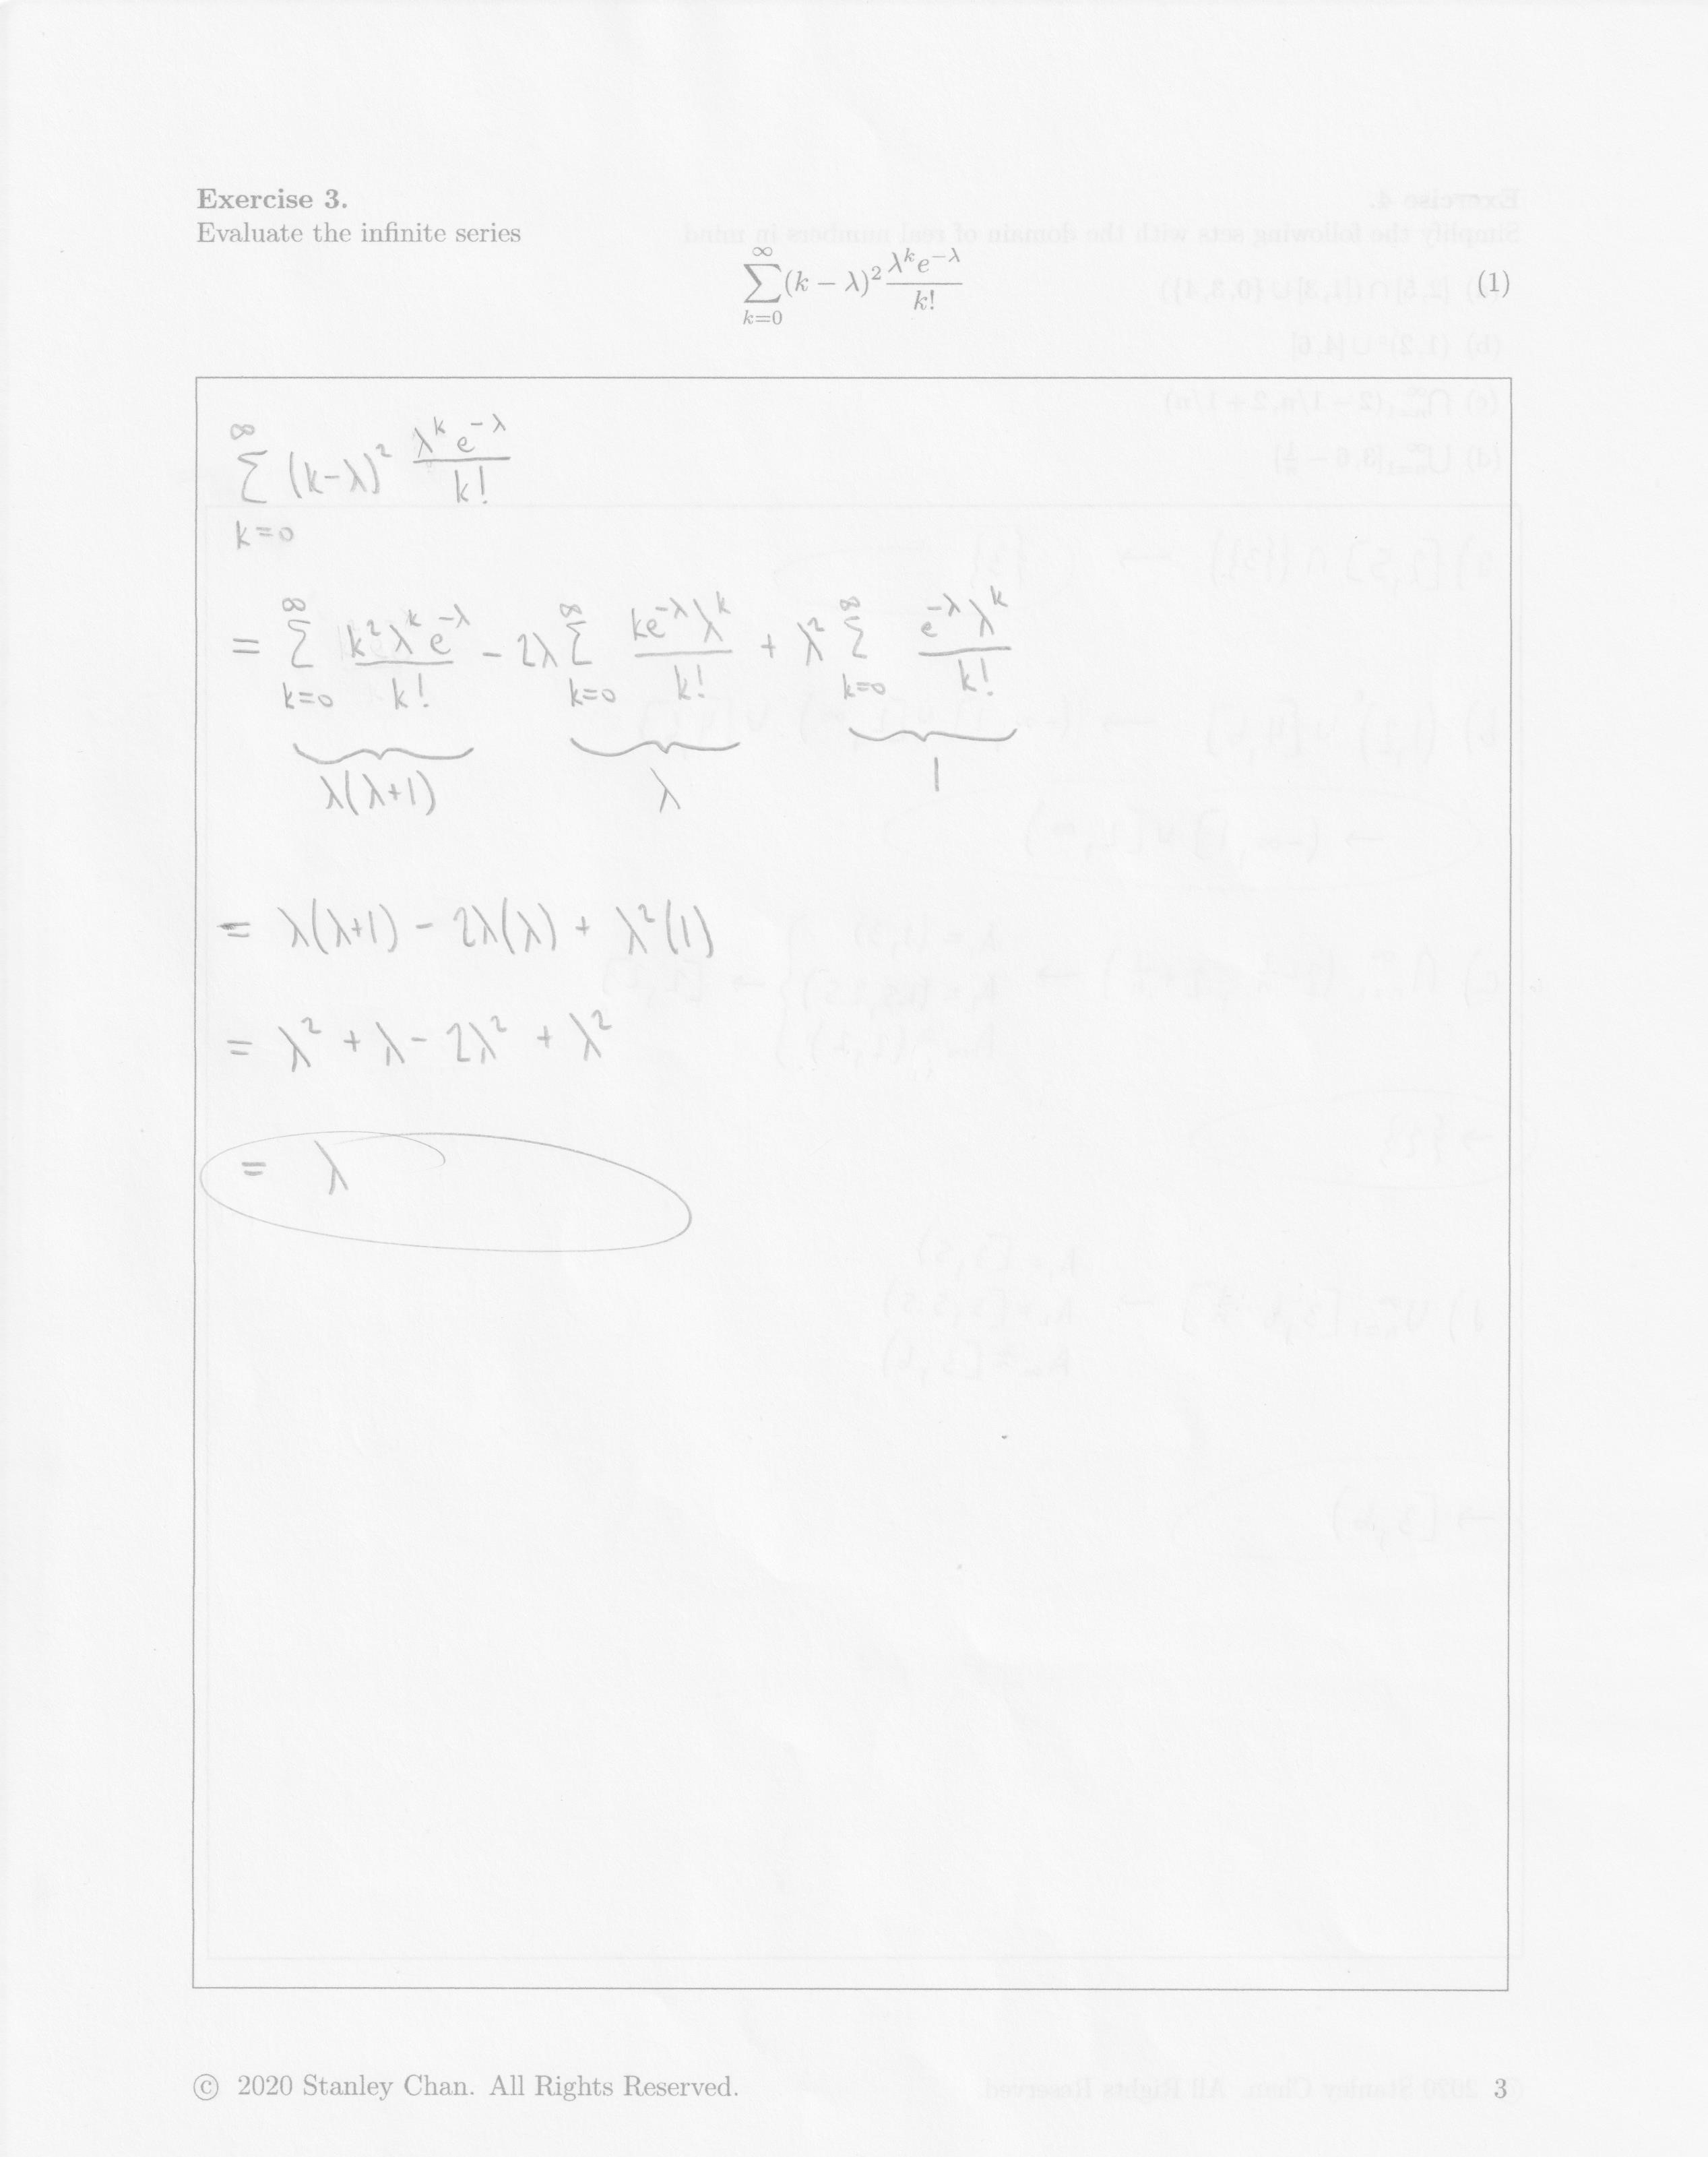 Exercise 3.
Evaluate the infinite series
∑_{k=0}^{∞} (k − λ)² λ^k e^{−λ} / k! (1)
∑_{k=0}^{∞} (k-λ)² λ^k e^{-λ} / k!
= ∑_{k=0}^{∞} k² λ^k e^{-λ} / k! - 2λ ∑_{k=0}^{∞} k e^{-λ} λ^k / k! + λ² ∑_{k=0}^{∞} e^{-λ} λ^k / k!
λ(λ+1) λ 1
= λ(λ+1) - 2λ(λ) + λ²(1)
= λ² + λ - 2λ² + λ²
= λ
© 2020 Stanley Chan. All Rights Reserved. 3